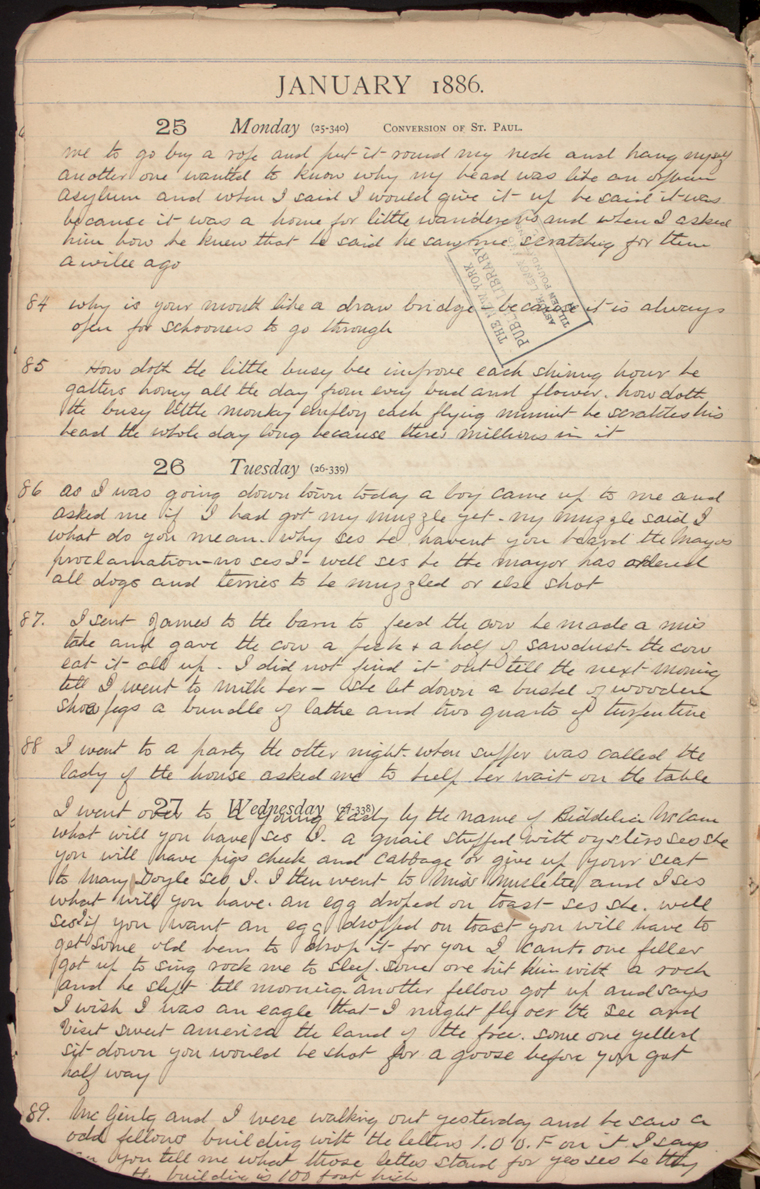 JANUARY 1886.
25 Monday (25-340) CONVERSION OF ST. PAUL.
me to go buy a rope and put it round my neck and hang myself
another one wanted to know why my head was like an orphan
asylum and when I said I would give it up he said it was
because it was a home for little wanderers and when I asked
him how he knew that he said he saw me scratching for them
a wilee ago
THE NEW YORK
PUBLIC LIBRARY
ASTOR, LENOX AND
TILDEN FOUNDATIONS
84 why is your mouth like a draw bridge because it is always
open for schooners to go through
85 How doth the little busy bee improve each shining hour he
gathers honey all the day from every bud and flower. how doth
the busy little monkey employ each flying minuit he scratches his
head the whole day long because theres millions in it
26 Tuesday (26-339)
86 as I was going down town today a boy came up to me and
asked me if I had got my muzzle yet - my muzzle said I
what do you mean. why ses he havent you heard the mayors
proclamation - no ses I - well ses he the mayor has ordered
all dogs and terries to be muzzled or else shot
87. I sent James to the barn to feed the cow he made a mis
take and gave the cow a peck & a half of sawdust - the cow
eat it all up - I did not find it out till the next morning
till I went to milk her - she let down a bushel of wooden
shoe pegs a bundle of lathe and two quarts of turpentine
88 I went to a party the other night when supper was called the
lady of the house asked me to help her wait on the table
27 Wednesday (27-338)
I went over to a young lady by the name of Biddelia McCann
what will you have ses I. a quail stuffed with oysters ses she
you will have pigs cheek and cabbage or give up your seat
to Mary Doyle ses I. I then went to Miss and I ses
what will you have. an egg droped on toast - ses she. well
ses I if you want an egg dropped on toast you will have to
get some old hen to drop it for you I cant. one feller
got up to sing rock me to sleep. some one hit him with a rock
and he slept till morning. another fellow got up and says
I wish I was an eagle that I might fly oer the see and
visit sweet america the land of the free. some one yelled
sit down you would be shot for a goose before you got
half way
89. McGinty and I were walking out yesterday and he saw a
odd fellows building with the letters I.O.O.F on it I says
can you tell me what those letters stand for yes ses he they
the building is 100 foot high